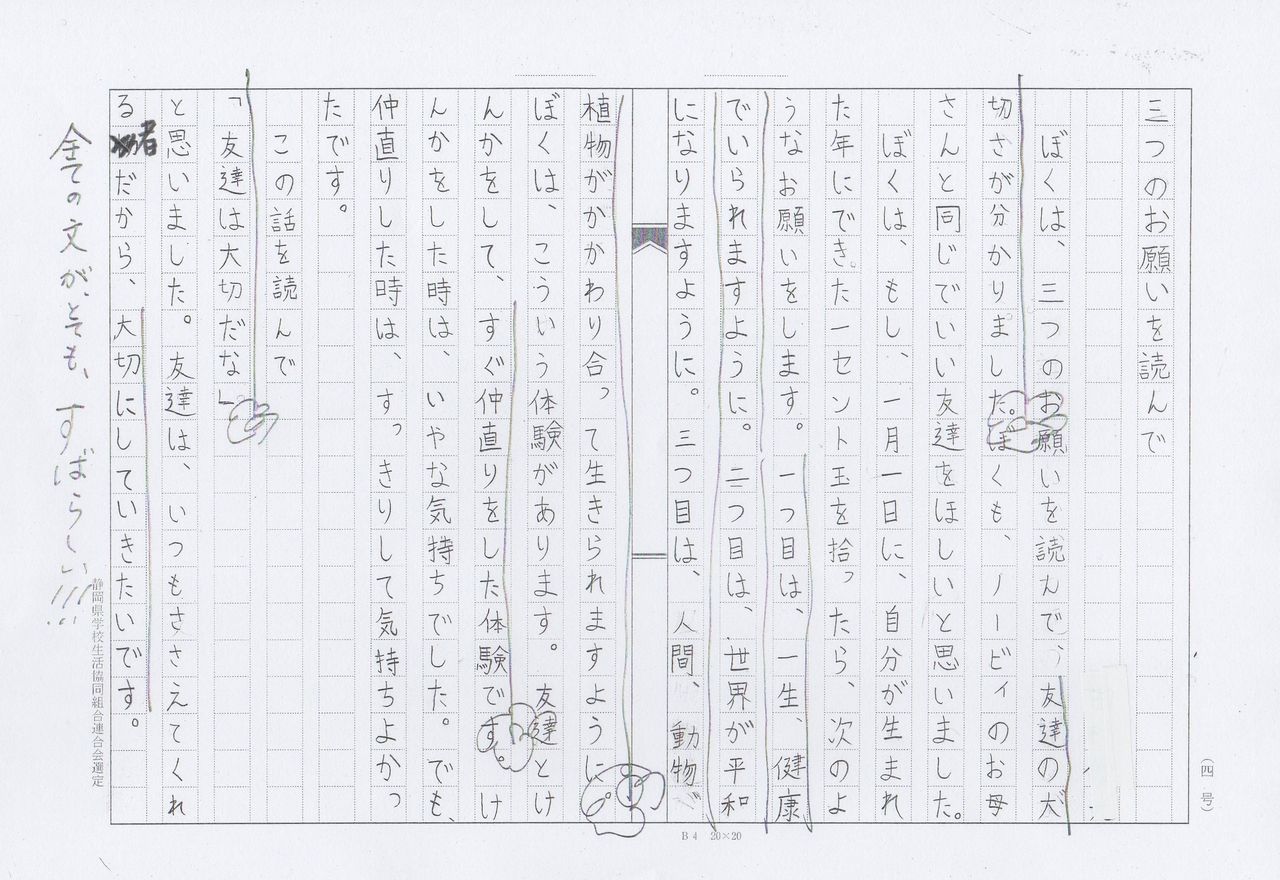 三つのお願いを読んで
ぼくは、三つのお願いを読んで、友達の大
切さが分かりました。ぼくも、ノービィのお母
さんと同じでいい友達をほしいと思いました。
ぼくは、もし、一月一日に、自分が生まれ
た年にできた一セント玉を拾ったら、次のよ
うなお願いをします。一つ目は、一生、健康
でいられますように。二つ目は、世界が平和
になりますように。三つ目は、人間、動物、
植物がかかわり合って生きられますように。
ぼくは、こういう体験があります。友達とけ
んかをして、すぐ仲直りをした体験です。け
んかをした時は、いやな気持ちでした。でも、
仲直りした時は、すっきりして気持ちよかっ
たです。
この話を読んで
「友達は大切だな」
と思いました。友達は、いつもささえてくれ
る者だから、大切にしていきたいです。
全ての文が、とても、すばらしい!!!
静岡県学校生活協同組合連合会選定
(四号)
B4 20×20